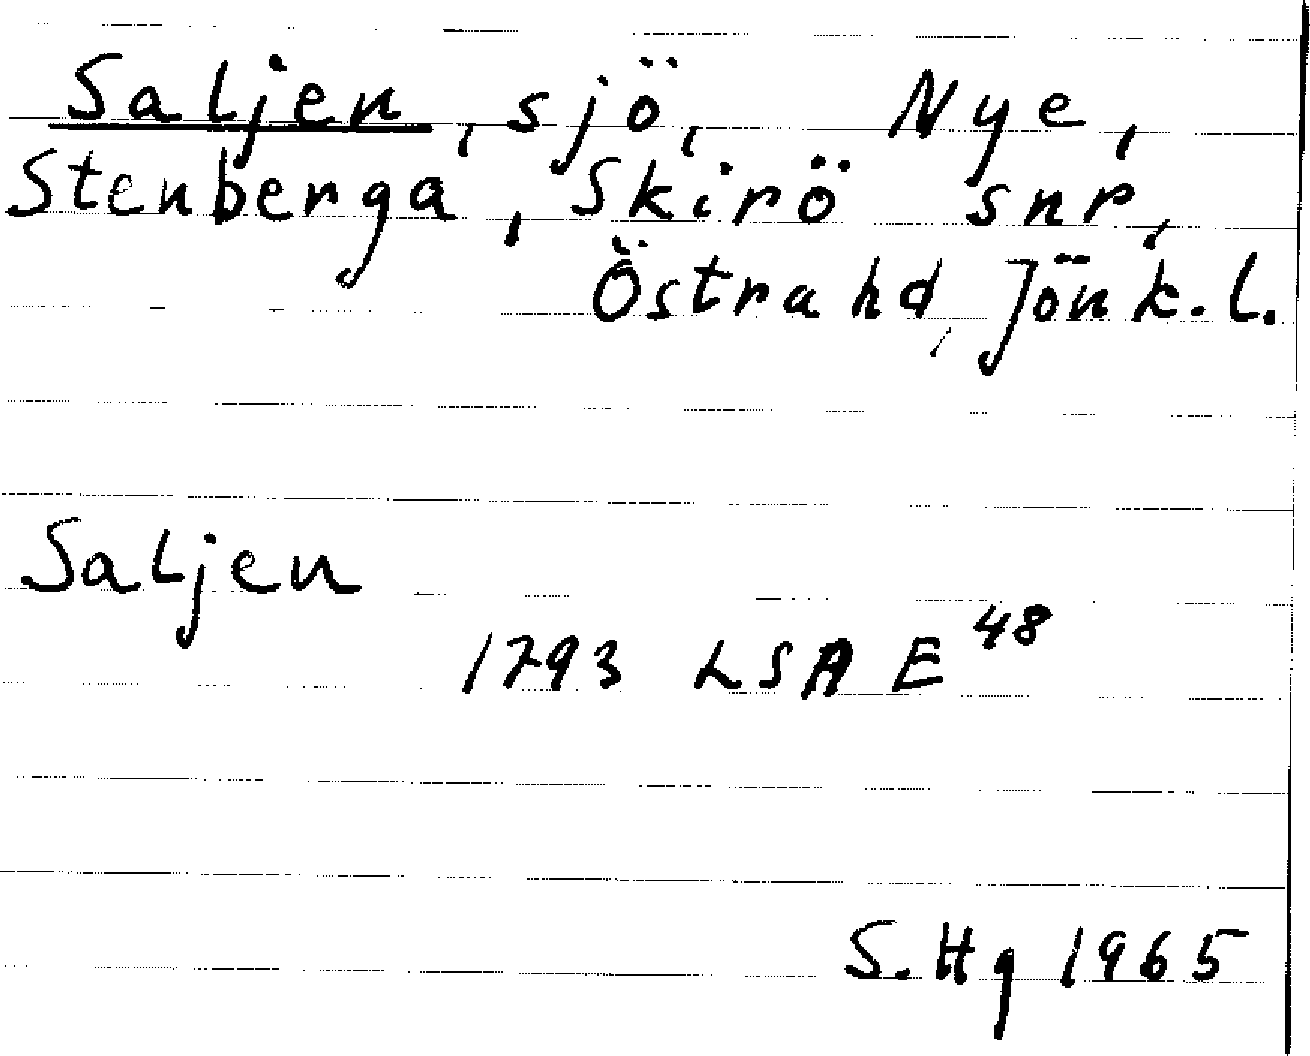 Saljen, sjö, Nye,
Stenberga, Skirö snr,
Östra hd, Jönk. l.
Saljen
1793 LSA E 48
S. Hg 1965